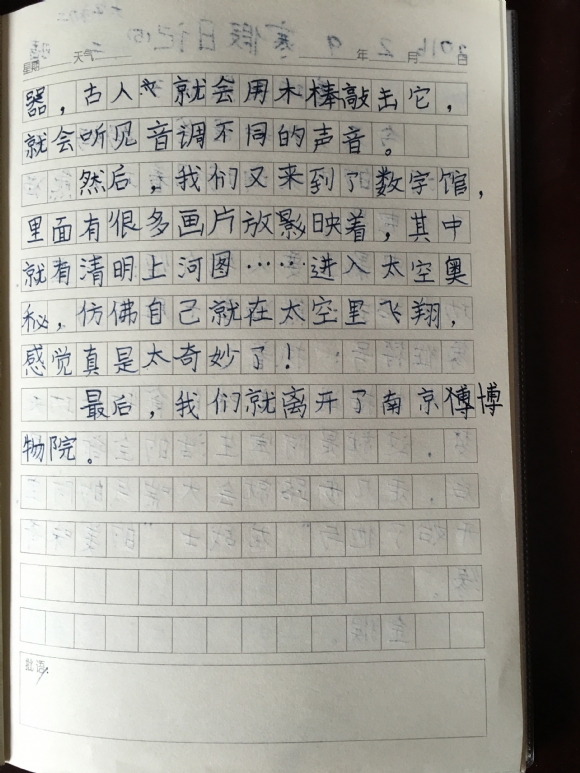 年 月 日
星期 天气
器，古人就会用木棒敲击它，
就会听见音调不同的声音。
然后，我们又来到了数字馆，
里面有很多画片放影映着，其中
就有清明上河图……进入太空奥
秘，仿佛自己就在太空里飞翔，
感觉真是太奇妙了！
最后，我们就离开了南京博
物院。
批语: